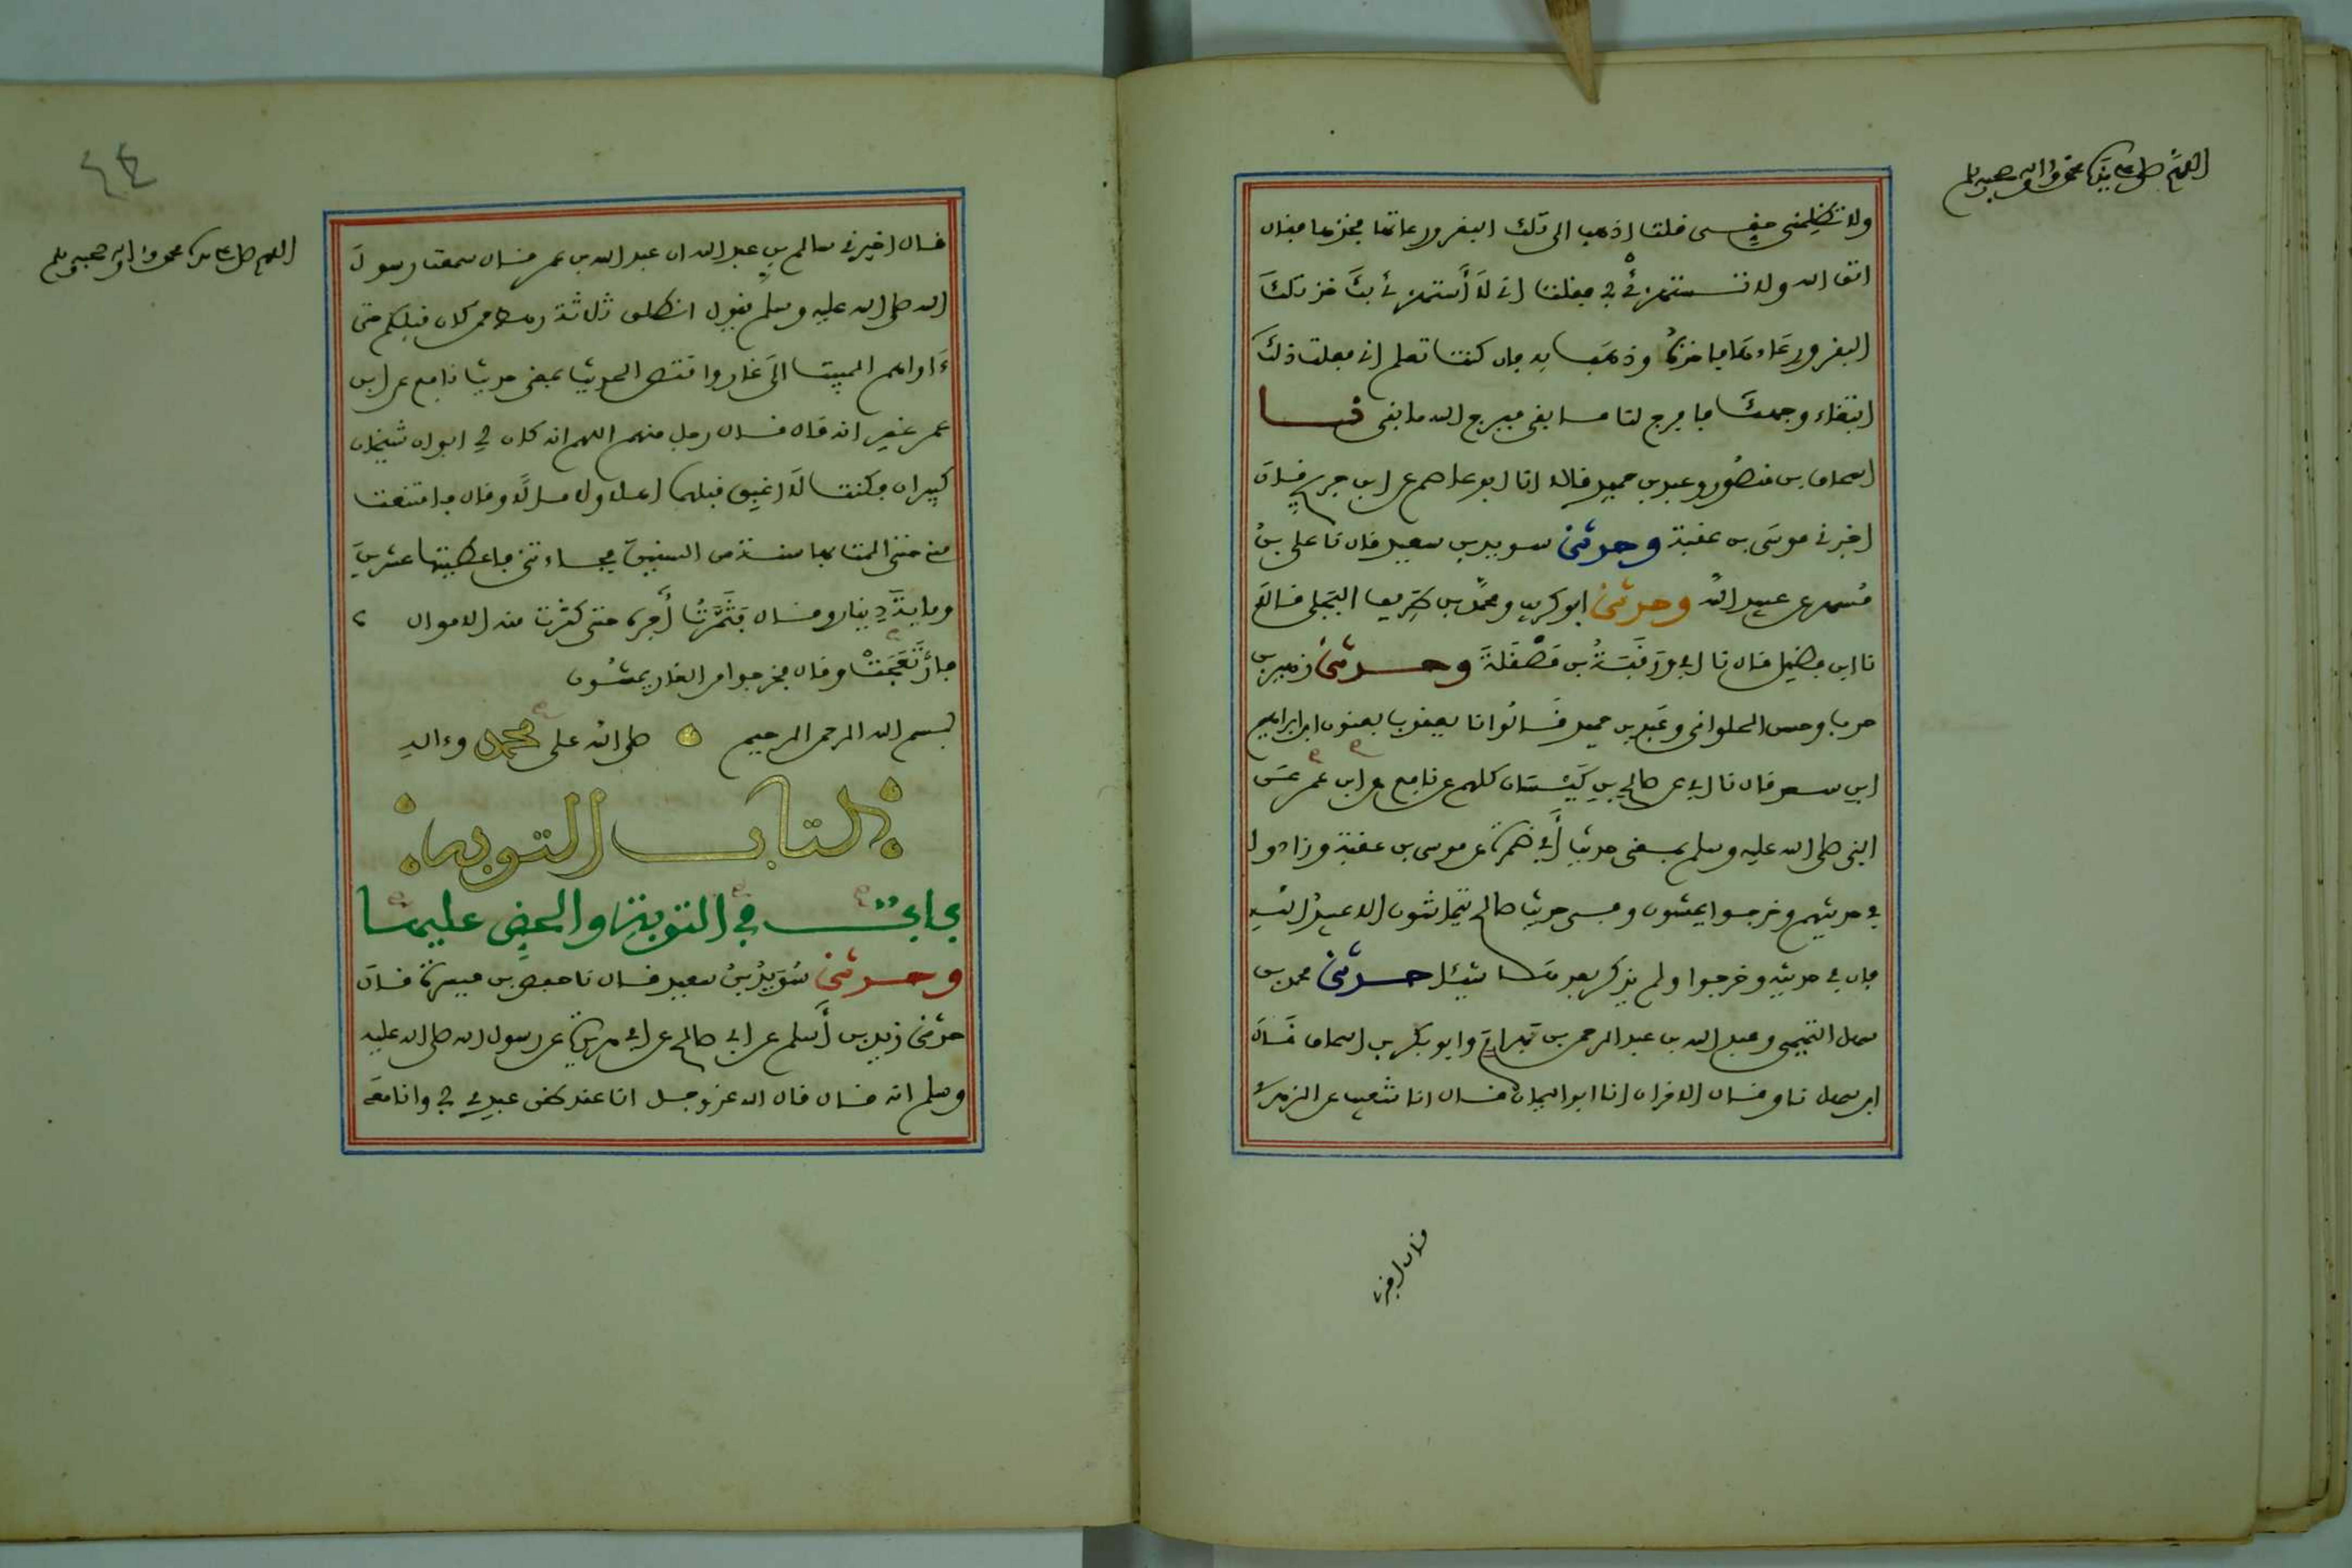 اللهم صل على سيدنا محمد وءاله وصحبه وسلم
ولا تظلمني حقي قلت اذهب الى تلك البقر ورعائها فخذها فقال
اتق الله ولا تستهزئ بي فقلت اني لا أستهزئ بك خذ ذلك
البقر ورعاءها فاخذه وذهب به فان كنت تعلم اني فعلت ذلك
ابتغاء وجهك فافرج لنا ما بقي ففرج الله ما بقي نا
اسحاق بن منصور وعبد بن حميد قالا انا ابو عاصم عن ابن جريج قال
اخبرني موسى بن عقبة وحدثني سويد بن سعيد قال نا علي بن
مسهر عن عبيد الله وحدثني ابو كريب ومحمد بن طريف البجلي قالا
نا ابن فضيل قال نا ابي ورقبة بن مصقلة وحدثني زهير بن
حرب وحسن الحلواني وعبد بن حميد قالوا نا يعقوب يعنون ابن ابراهيم
ابن سعد قال نا ابي عن صالح بن كيسان كلهم عن نافع عن ابن عمر عن
النبي صلى الله عليه وسلم بمعنى حديث أبي ضمرة عن موسى بن عقبة وزادوا
في حديثهم وخرجوا يمشون وفي حديث صالح يتماشون الا عبيد الله
فان في حديثه وخرجوا ولم يذكر بعدها شيئا حدثني محمد بن
سهل التميمي وعبد الله بن عبد الرحمن بن بهرام وابو بكر بن اسحاق قال
ابن سهل نا وقال الاخران انا ابو اليمان قال انا شعيب عن الزهري
قال اخبرني
٤٤
اللهم صل على سيدنا محمد وءاله وصحبه وسلم
قال اخبرني سالم بن عبد الله ان عبد الله بن عمر قال سمعت رسول
الله صلى الله عليه وسلم يقول انطلق ثلاثة رهط ممن كان قبلكم حتى
ءاواهم المبيت الى غار واقتص الحديث بمعنى حديث نافع عن ابن
عمر غير انه قال قال رجل منهم اللهم انه كان لي ابوان شيخان
كبيران وكنت لا اغبق قبلهما اهلا ولا مالا وقال فامتنعت
مني حتى المت بها سنة من السنين فجاءتني فاعطيتها عشرين
ومائة دينار وقال فثمرت أجره حتى كثرت منه الاموال
فارتعجت وقال فخرجوا من الغار يمشون
بسم الله الرحمن الرحيم صلى الله على محمد وءاله
كتاب التوبة
باب في التوبة والحض عليها
وحدثني سويد بن سعيد قال نا حفص بن ميسرة قال
حدثني زيد بن أسلم عن ابي صالح عن ابي هريرة عن رسول الله صلى الله عليه
وسلم انه قال قال الله عز وجل انا عند ظن عبدي بي وانا معه